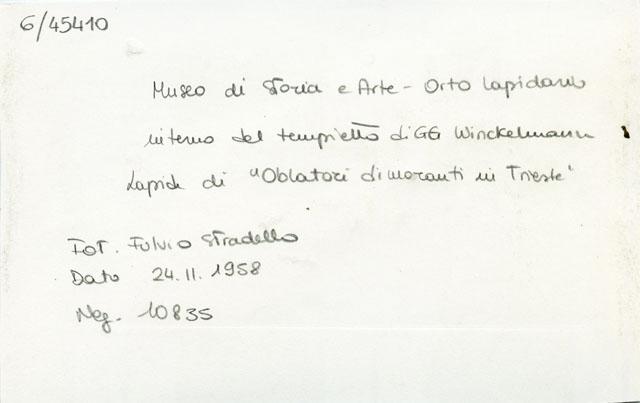 6/45410
Museo di Storia e Arte - Orto lapidario
interno del tempietto di GG Winckelmann
Lapide di "Oblatori dimoranti in Trieste"
Fot. Fulvio Stradello
Data 24.11.1958
Neg. 10835